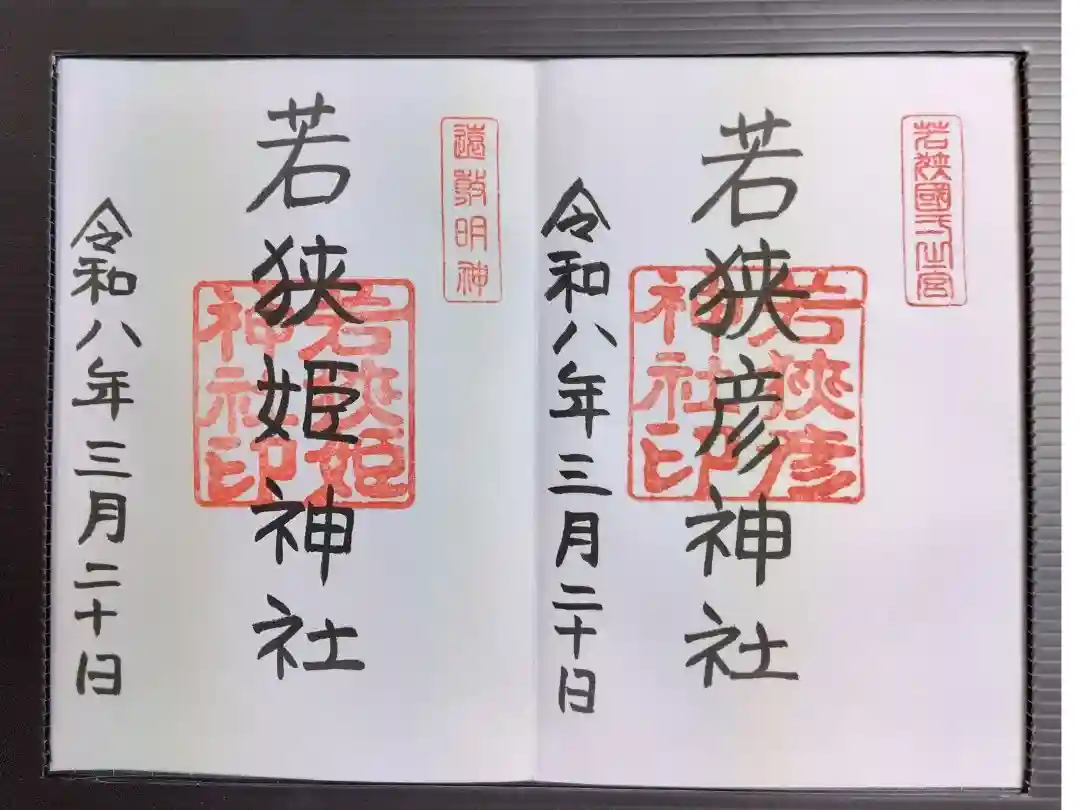 若狹國一之宮
若狭彦神社
若狹彦
神社印
令和八年三月二十日
遠敷明神
若狭姫神社
若狹姫
神社印
令和八年三月二十日